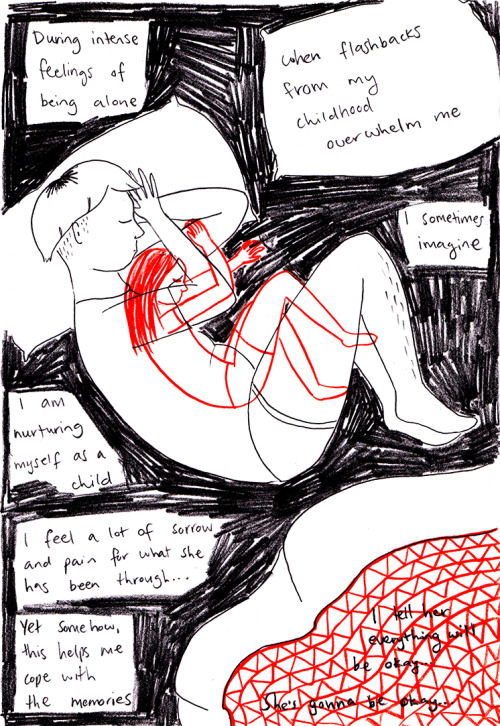 During intense
feelings of
being alone
when flashbacks
from my
childhood
overwhelm me
I sometimes
imagine
I am
nurturing
myself as a
child
I feel a lot of sorrow
and pain for what she
has been through...
Yet somehow,
this helps me
cope with
the memories
I tell her
everything will
be okay...
She's gonna be okay...